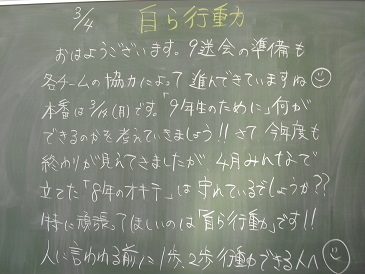 3/4 自ら行動力
おはようございます。9送会の準備も
各チームの協力によって進んできていますね
本番は3/12(月)です。「9年生のために」何が
できるのかを考えていきましょう!! さて今年度も
終わりが見えてきましたが4月みんなで
立てた「8年のオキテ」は守れているでしょうか??
特に頑張ってほしいのは「自ら行動力」です!!
人に言われる前に1歩、2歩行動できる人へ